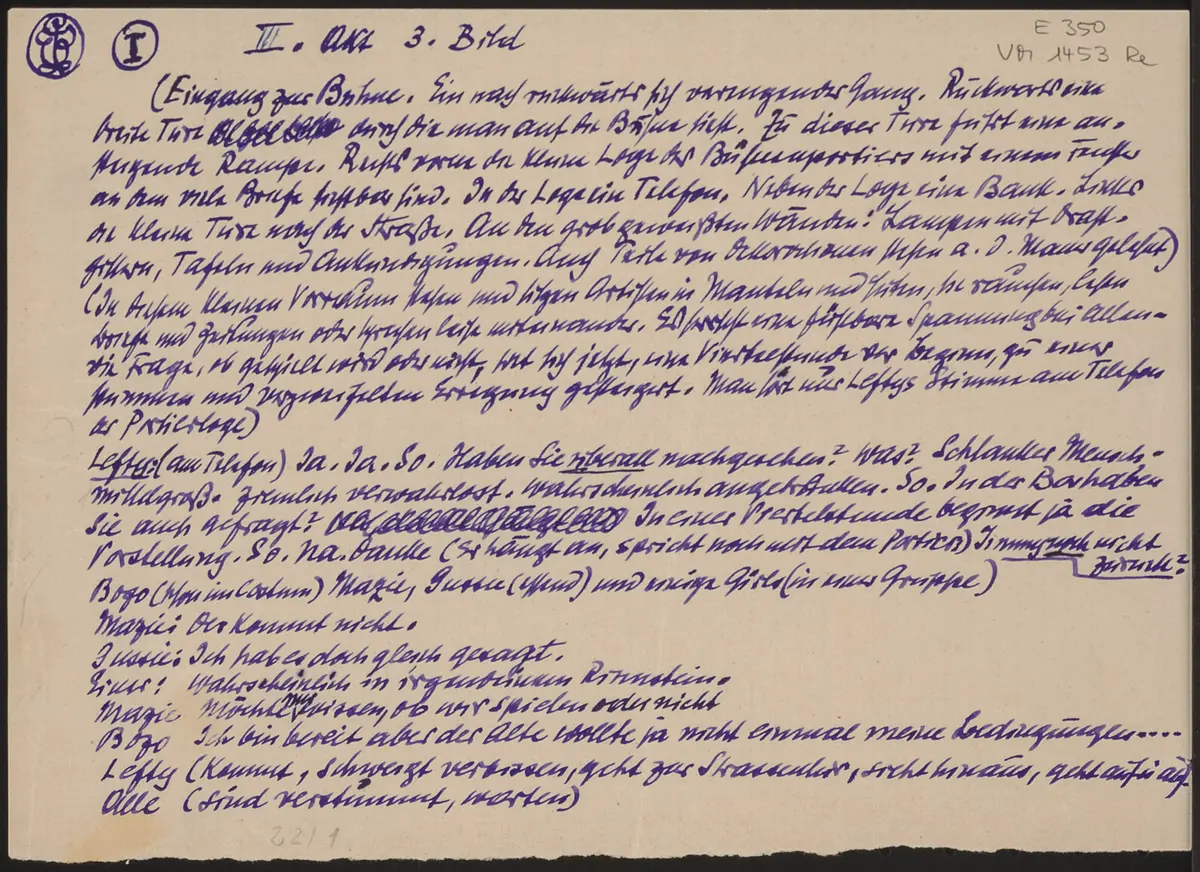 I III. Akt 3. Bild
E 350
VM 1453 Re
(Eingang zur Bühne. Ein nach rückwärts sich verengender Gang. Rückwärts eine
breite Türe durch die man auf die Bühne sieht. Zu dieser Türe führt eine an-
steigende Rampe. Rechts vorne die kleine Loge des Bühnenportiers mit einem Fenster
an dem viele Briefe sichtbar sind. In der Loge ein Telefon. Neben der Loge eine Bank. Links
die kleine Türe nach der Straße. An den grob geweißten Wänden: Lampen mit Draht-
gittern, Tafeln und Ankündigungen. Auch Teile von Dekorationen stehen a. d. Mauer gelehnt)
(In diesem kleinen Vorraum stehen und sitzen Artisten in Mänteln und Hüten, sie rauchen, lesen
Briefe und Zeitungen oder sprechen leise miteinander. Es herrscht eine fühlbare Spannung bei Allen -
die Frage, ob gespielt wird oder nicht, hat sich jetzt, eine Viertelstunde vor Beginn, zu einer
stummen und verzweifelten Erregung gesteigert. Man hört nur Leftys Stimme am Telefon
der Portierloge)
Lefty: (am Telefon) Ja. Ja. So. Haben Sie überall nachgesehen? Was? Schlanker Mensch -
mittelgroß. Ziemlich verwahrlost. Wahrscheinlich angetrunken. So. In der Bar haben
Sie auch gefragt? In einer Viertelstunde beginnt ja die
Vorstellung. So. Na. Danke (Er hängt an, spricht noch mit dem Portier) Jimmy noch nicht
zurück?
Bozo (schon im Costum) Mazie, Gussie (essend) und einige Girls (in einer Gruppe)
Mazie: Der kommt nicht.
Gussie: Ich hab es doch gleich gesagt.
Einer: Wahrscheinlich in irgendeinem Rinnstein.
Mazie Möchte nur wissen, ob wir spielen oder nicht
Bozo Ich bin bereit aber der Alte wollte ja nicht einmal meine Bedingungen....
Lefty (kommt, schweigt verbissen, geht zur Strassentür, sieht hinaus, geht auf u. ab)
Alle (sind verstummt, warten)
22/1